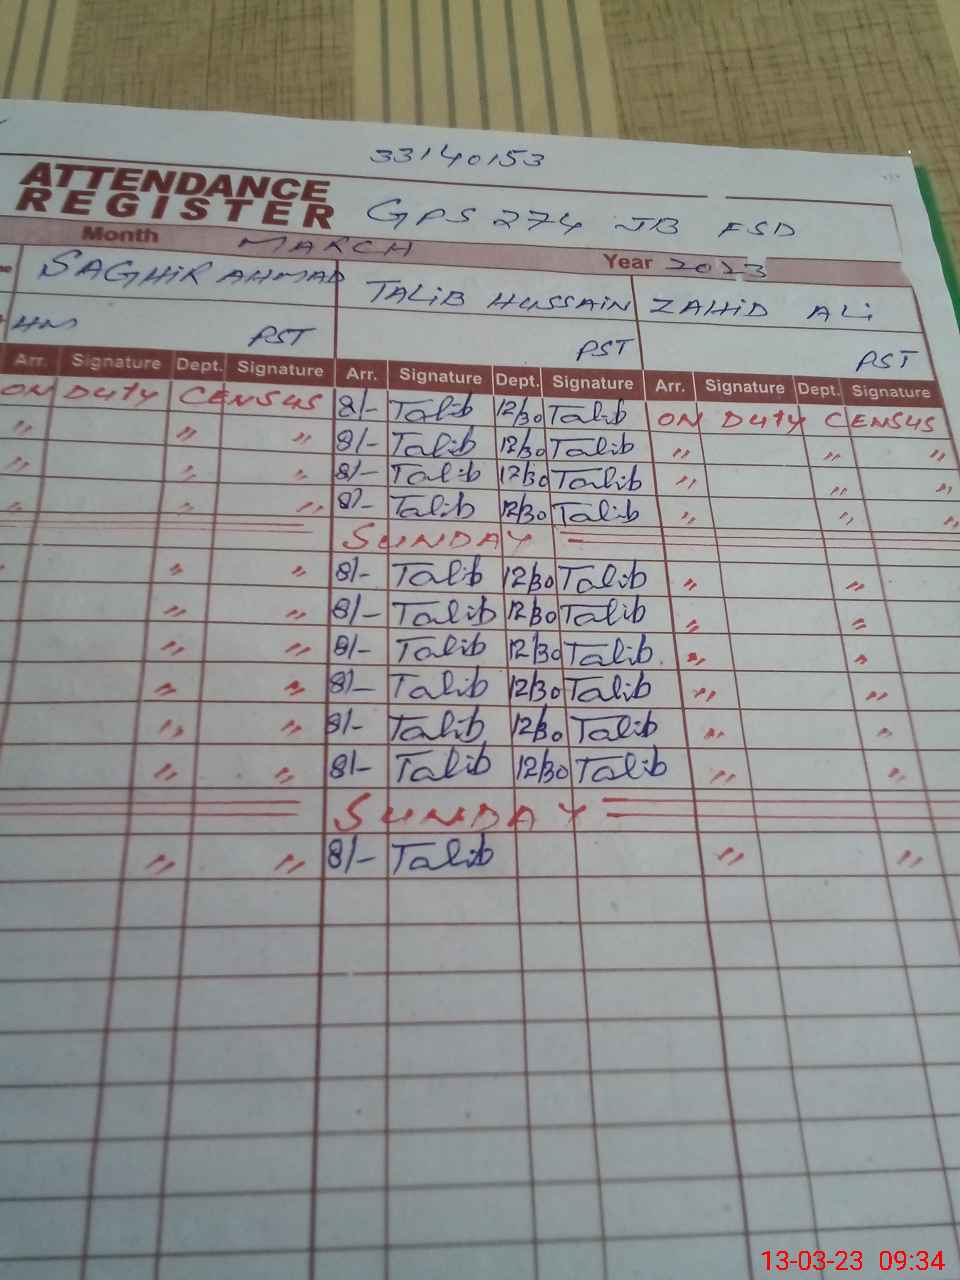 33140153
ATTENDANCE
REGISTER GPS 274 JB FSD
Month MARCH Year 2023
SAGHIR AHMAD TALIB HUSSAIN ZAHID ALI
HM PST PST PST
Arr. Signature Dept. Signature Arr. Signature Dept. Signature Arr. Signature Dept. Signature
ON DUTY CENSUS 8/- Talib 12/30 Talib ON DUTY CENSUS
" " " 8/- Talib 12/30 Talib " " "
" " " 8/- Talib 12/30 Talib " " "
" " " 8/- Talib 12/30 Talib " " "
SUNDAY
" " " 8/- Talib 12/30 Talib " "
" " 8/- Talib 12/30 Talib " "
" " 8/- Talib 12/30 Talib " "
" " 8/- Talib 12/30 Talib " "
" " 8/- Talib 12/30 Talib " "
" " 8/- Talib 12/30 Talib " "
SUNDAY
" " 8/- Talib " "
13-03-23 09:34